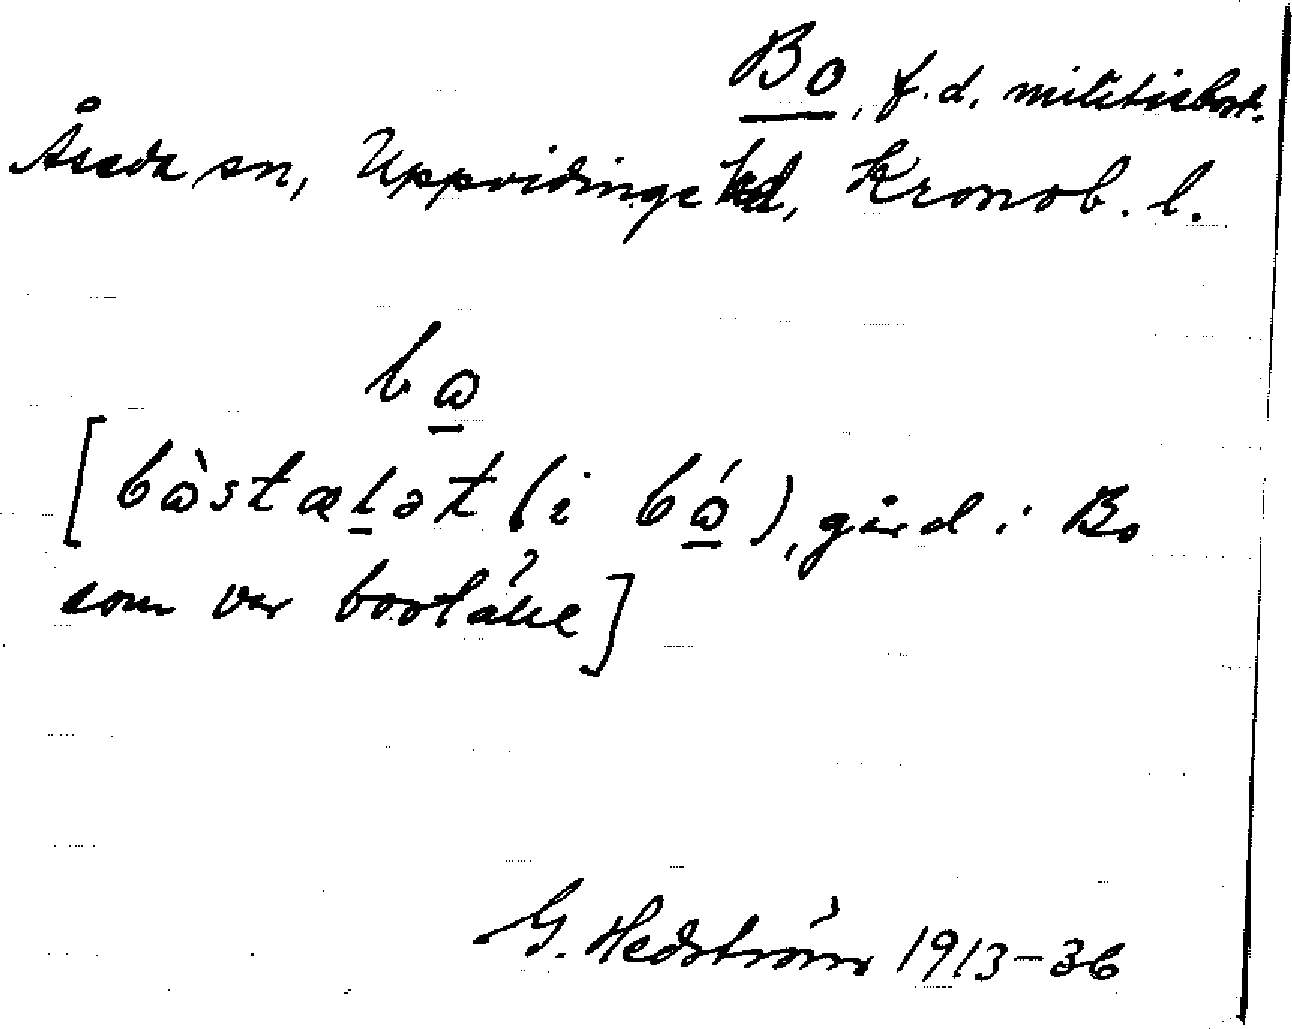 Bo, f.d. militiebost.
Åseda sn, Uppvidinge hd, Kronob. l.
bω
[bὼstæḻət (i bώ), gård i Bo
som var boställe]
G. Hedström 1913-36